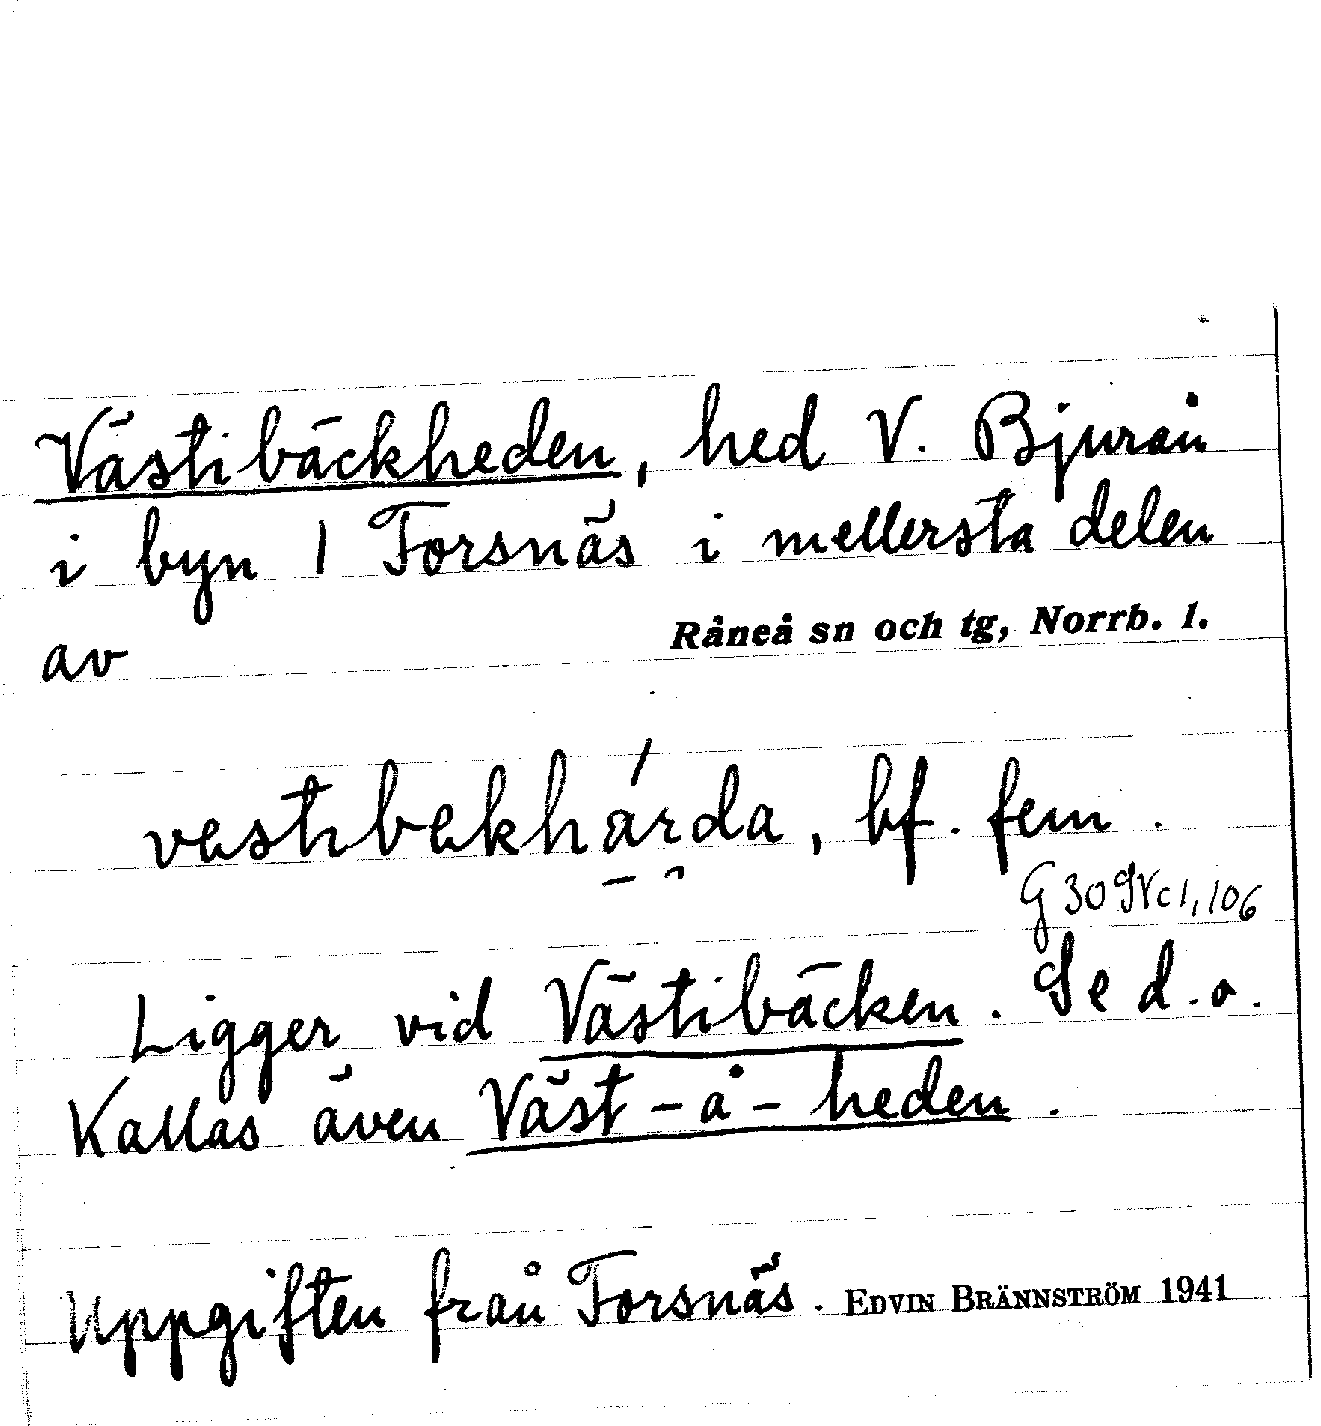 Västibäckheden, hed V. Bjurån
i byn 1 Forsnäs i mellersta delen
av Råneå sn och tg, Norrb. l.
vestıbekhárda, bf. fem.
G 30 SV c 1, 106
Ligger vid Västibäcken. Se d.o.
Kallas även Väst-å-heden.
Uppgiften från Forsnäs. EDVIN BRÄNNSTRÖM 1941